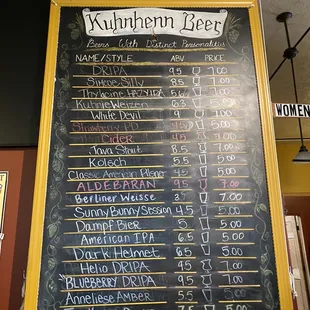 Kuhnhenn Beer
Beers With Distinct Personalities
NAME/STYLE ABV PRICE
DRIPA 9.5 7.00
Simcoe Silly 8.5 7.00
HAZY IPA 5.00
Kuhnie Weizen 6.3
White Devil 9 7.00
Strawberry
Cider 5.00
Java Stout 8.5 7.00
Kölsch 5.5 5.00
Classic American Pilsner 5.00
ALDEBARAN 9.5 7.00
Berliner Weisse 3 7.00
Sunny Bunny Session 4.5 5.00
Dampf Bier 5 5.00
American IPA 6.5 5.00
Dark Helmet 6.5 5.00
Helio DRIPA 9.5 7.00
"BLUEBERRY DRIPA 9.5 7.00
Anneliese AMBER 5.5 5.00
WOMEN